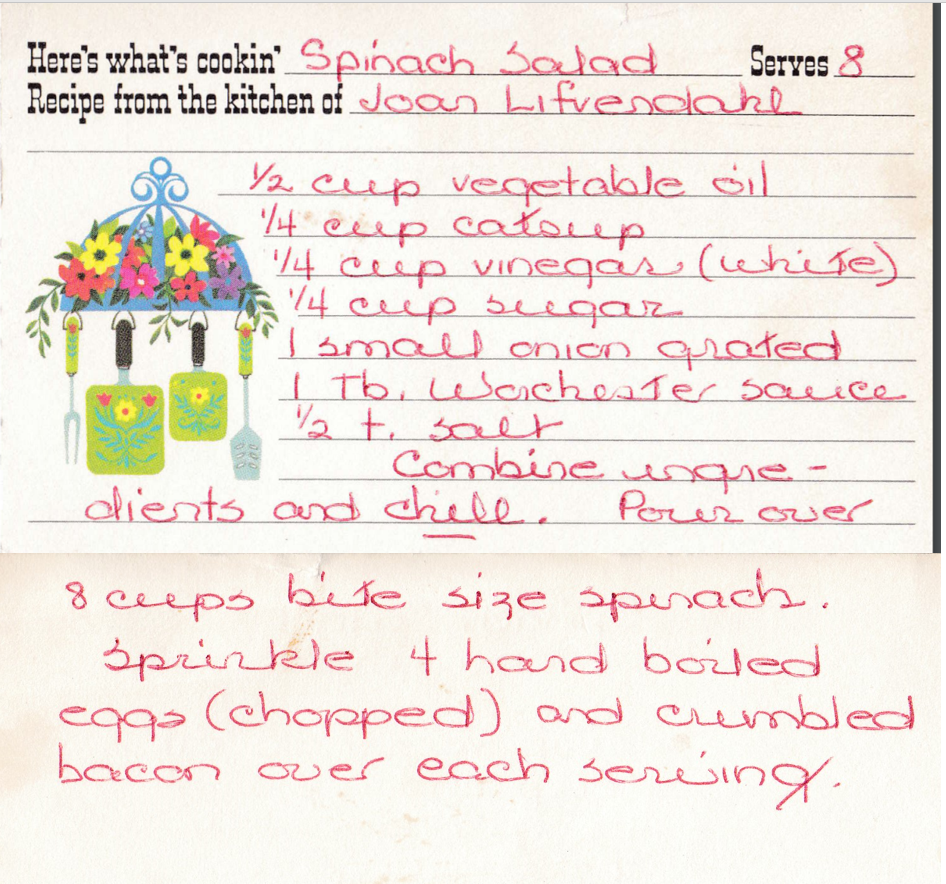 Here's what's cookin' Spinach Salad Serves 8
Recipe from the kitchen of Joan Lifvendahl
1/2 cup vegetable oil
1/4 cup catsup
1/4 cup vinegar (white)
1/4 cup sugar
1 small onion grated
1 Tb. Worchester sauce
1/2 t. salt
Combine ingre-
dients and chill. Pour over
8 cups bite size spinach.
Sprinkle 4 hard boiled
eggs (chopped) and crumbled
bacon over each serving.